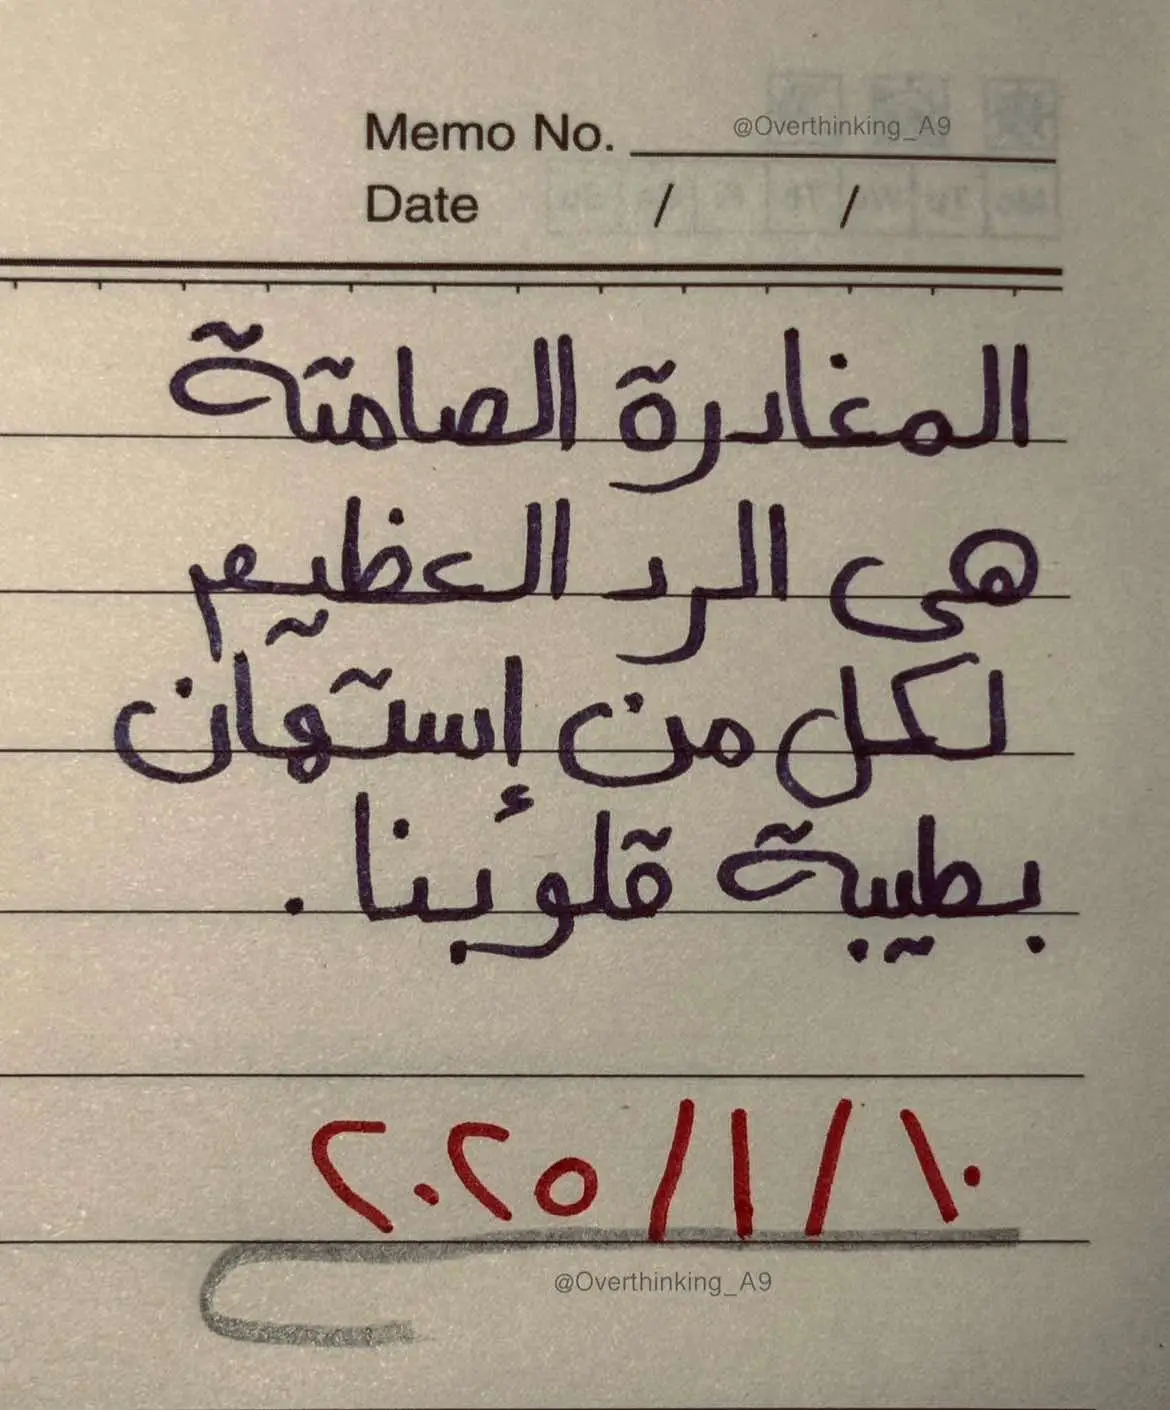 Memo No. @Overthinking_A9
Date / /
المغادرة الصامتة
هى الرد العظيم
لكل من إستهان
بطيبة قلوبنا .
١٠/١/٢٠٢٥
@Overthinking_A9